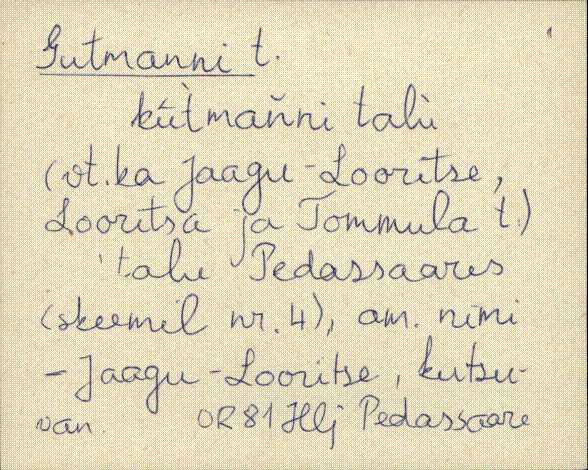 Gutmanni t.
kùt̀mańni talù
(vt. ka Jaagu-Looritse,
Looritsa ja Tommula t.)
talu Pedassaares
(skeemil nr. 4), am. nimi
- Jaagu-Looritse, kutsu-
van. OR 81 Hlj Pedassaare